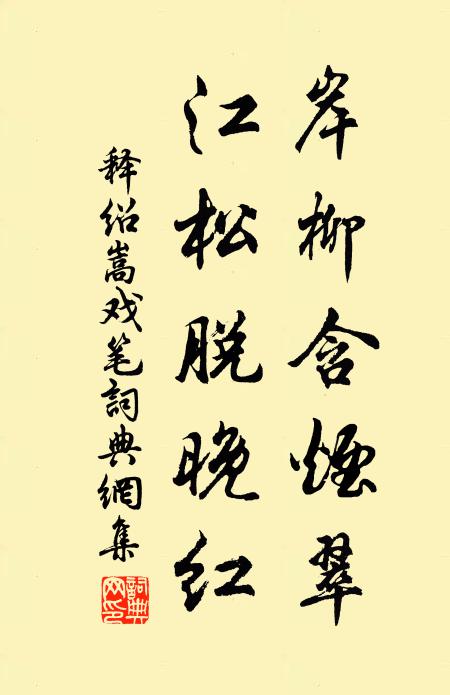 岸柳含煙翠
江松脱晚红
释绍嵩戏笔詞典網集
詞典网印